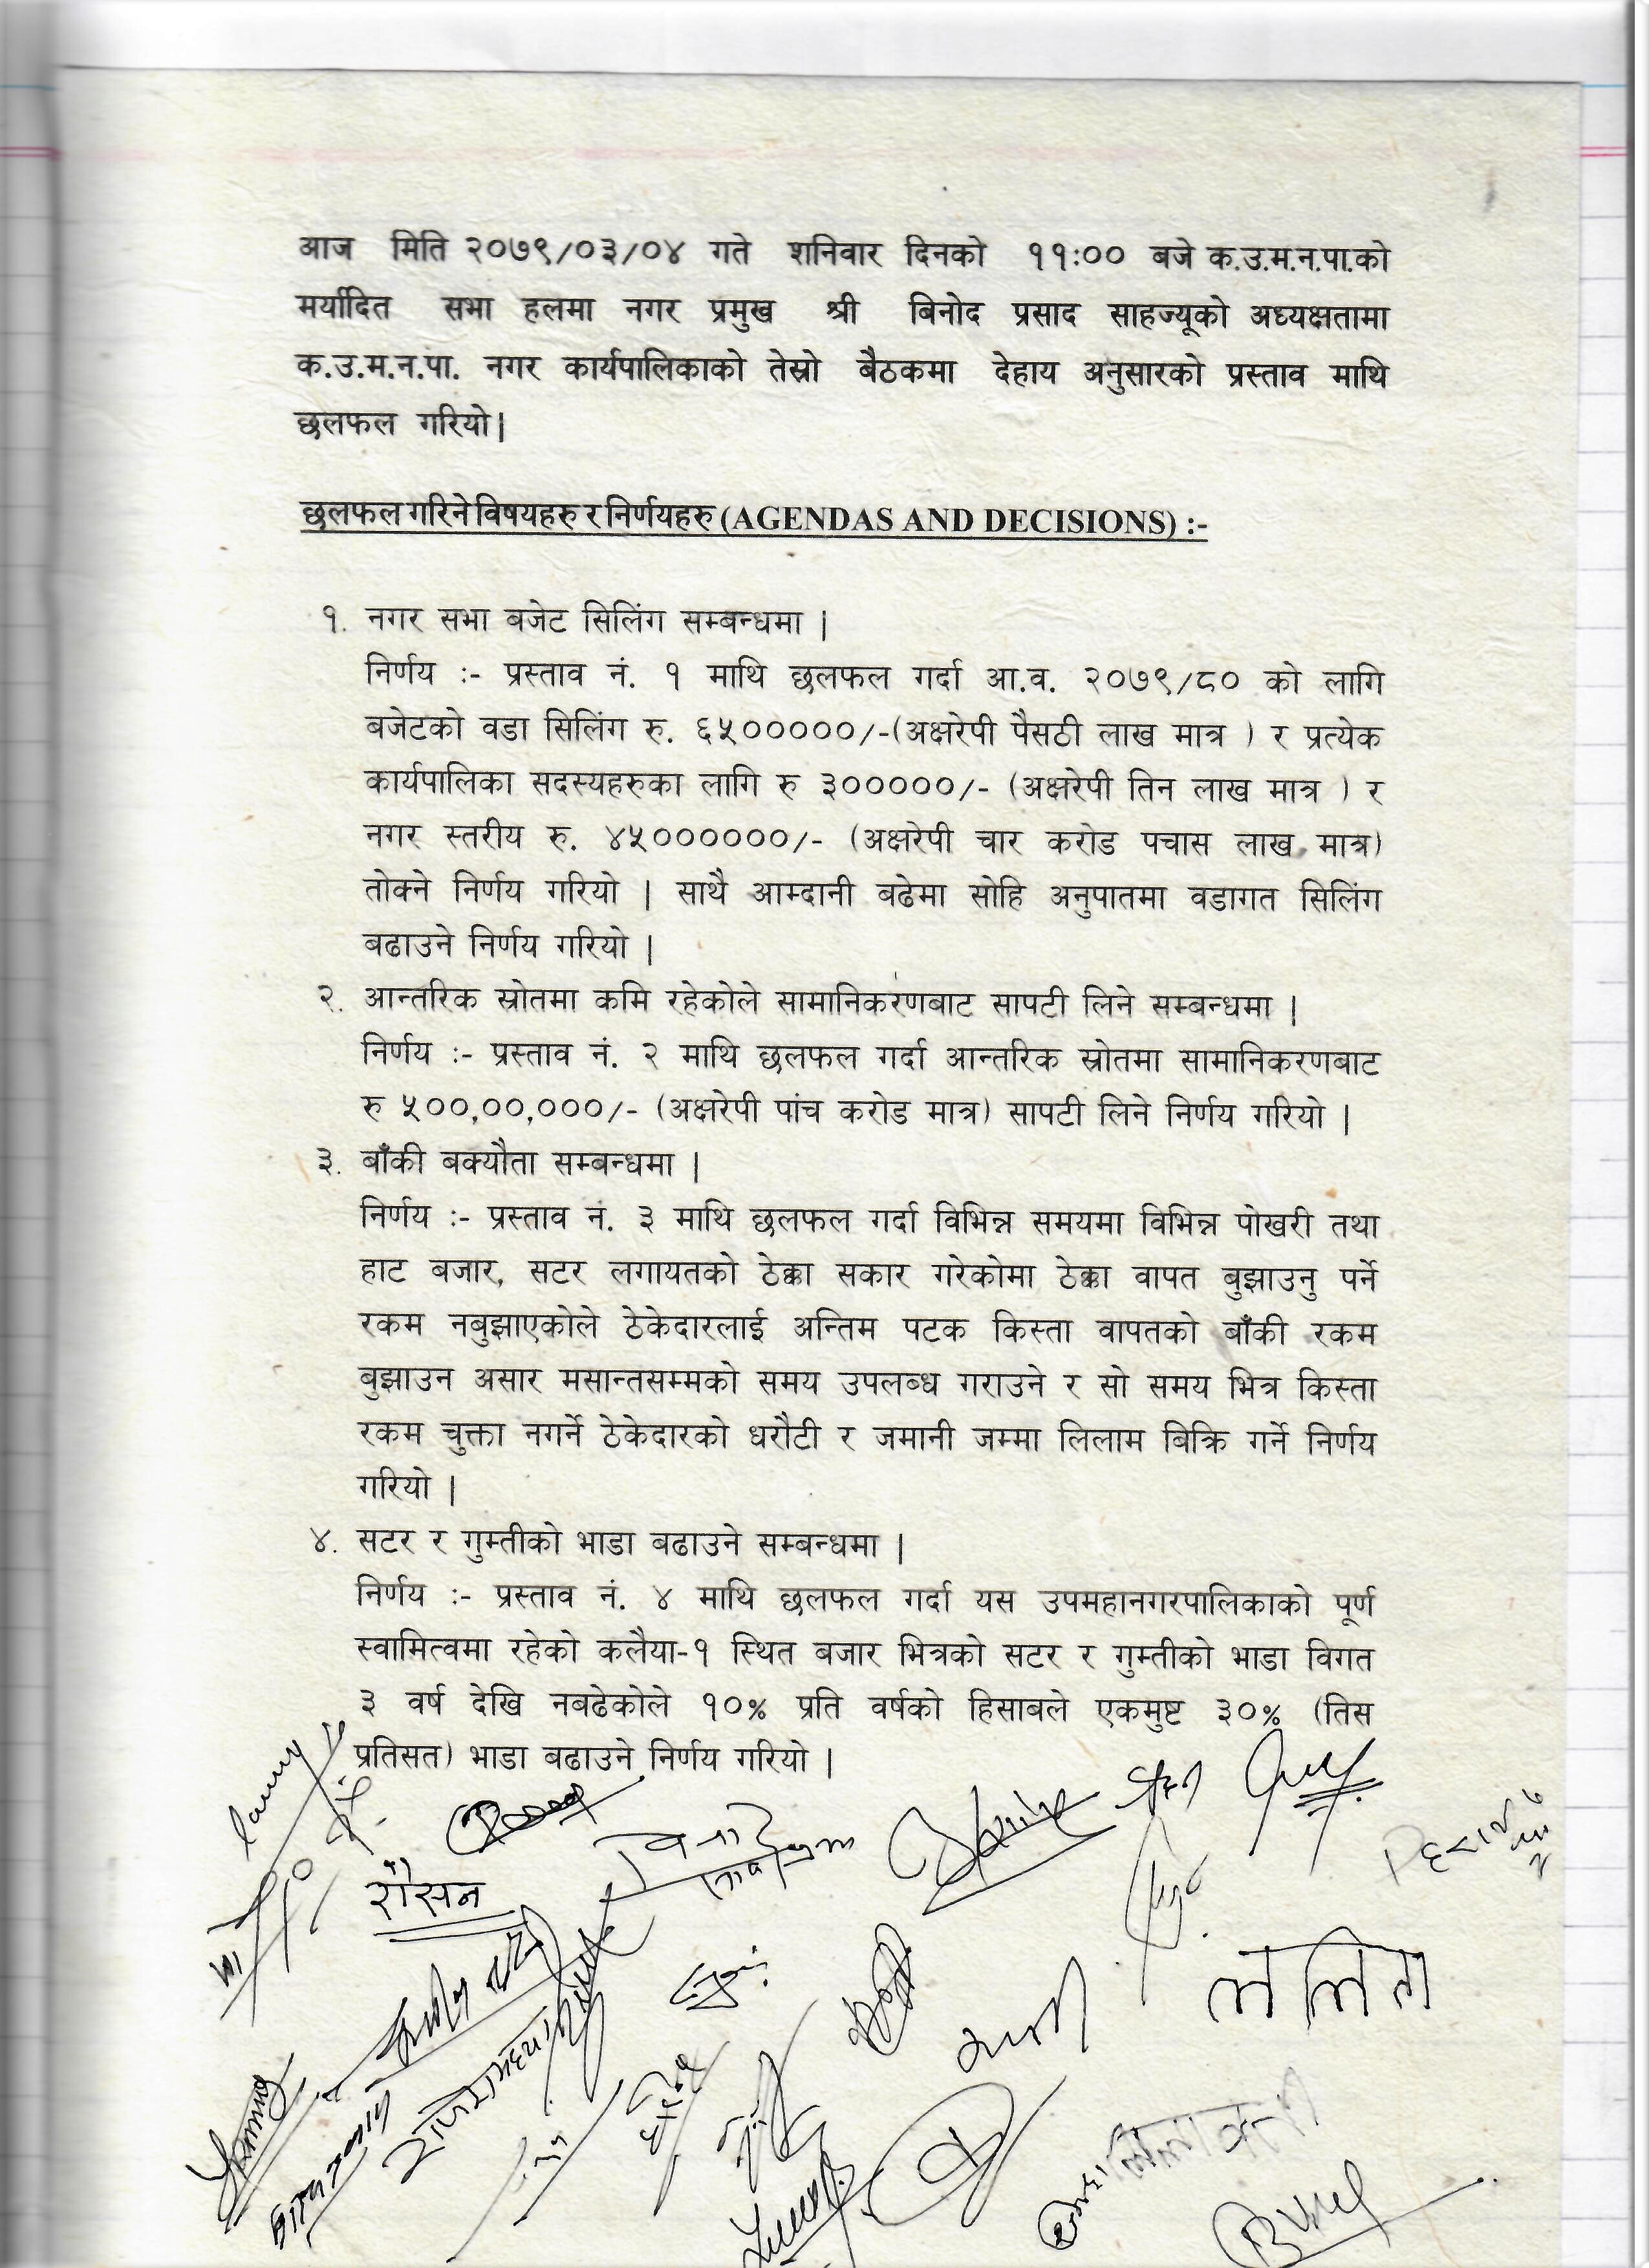 आज मिति २०७९/०३/०४ गते शनिवार दिनको ११:०० बजे क.उ.म.न.पा.को
मर्यादित सभा हलमा नगर प्रमुख श्री बिनोद प्रसाद साहज्यूको अध्यक्षतामा
क.उ.म.न.पा. नगर कार्यपालिकाको तेस्रो बैठकमा देहाय अनुसारको प्रस्ताव माथि
छलफल गरियो|
छलफल गरिने विषयहरु र निर्णयहरु (AGENDAS AND DECISIONS) :-
१. नगर सभा बजेट सिलिंग सम्बन्धमा |
निर्णय :- प्रस्ताव नं. १ माथि छलफल गर्दा आ.व. २०७९/८० को लागि
बजेटको वडा सिलिंग रु. ६५०००००/-(अक्षरेपी पैसठी लाख मात्र ) र प्रत्येक
कार्यपालिका सदस्यहरुका लागि रु ३०००००/- (अक्षरेपी तिन लाख मात्र ) र
नगर स्तरीय रु. ४५००००००/- (अक्षरेपी चार करोड पचास लाख मात्र)
तोक्ने निर्णय गरियो | साथै आम्दानी बढेमा सोहि अनुपातमा वडागत सिलिंग
बढाउने निर्णय गरियो |
२. आन्तरिक स्रोतमा कमि रहेकोले सामानिकरणबाट सापटी लिने सम्बन्धमा |
निर्णय :- प्रस्ताव नं. २ माथि छलफल गर्दा आन्तरिक स्रोतमा सामानिकरणबाट
रु ५००,००,०००/- (अक्षरेपी पांच करोड मात्र) सापटी लिने निर्णय गरियो |
३. बाँकी बक्यौता सम्बन्धमा |
निर्णय :- प्रस्ताव नं. ३ माथि छलफल गर्दा विभिन्न समयमा विभिन्न पोखरी तथा
हाट बजार, सटर लगायतको ठेक्का सकार गरेकोमा ठेक्का वापत बुझाउनु पर्ने
रकम नबुझाएकोले ठेकेदारलाई अन्तिम पटक किस्ता वापतको बाँकी रकम
बुझाउन असार मसान्तसम्मको समय उपलब्ध गराउने र सो समय भित्र किस्ता
रकम चुक्ता नगर्ने ठेकेदारको धरौटी र जमानी जम्मा लिलाम बिक्रि गर्ने निर्णय
गरियो |
४. सटर र गुम्तीको भाडा बढाउने सम्बन्धमा |
निर्णय :- प्रस्ताव नं. ४ माथि छलफल गर्दा यस उपमहानगरपालिकाको पूर्ण
स्वामित्वमा रहेको कलैया-१ स्थित बजार भित्रको सटर र गुम्तीको भाडा विगत
३ वर्ष देखि नबढेकोले १०% प्रति वर्षको हिसाबले एकमुष्ट ३०% (तिस
प्रतिसत) भाडा बढाउने निर्णय गरियो |
रौसन
ललिता